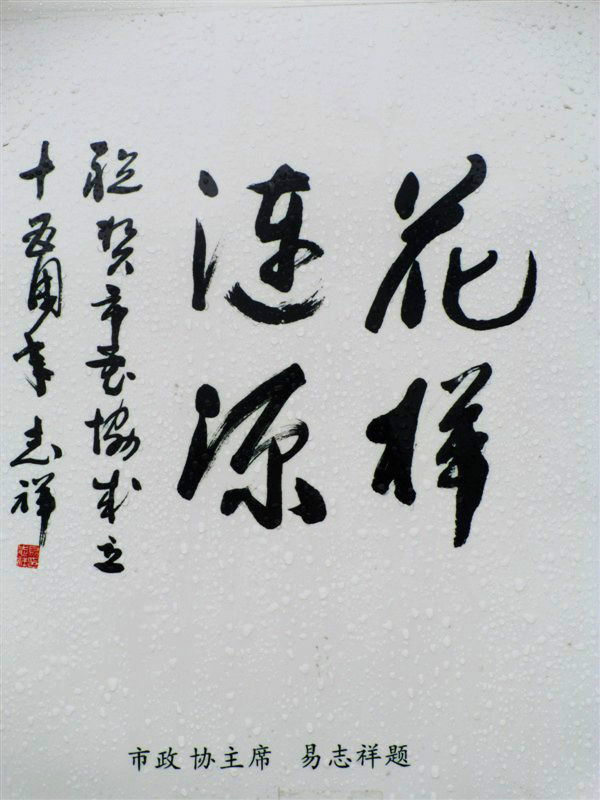 花样
涟源
祝贺市花协成立
十五周年 志祥
市政协主席 易志祥题